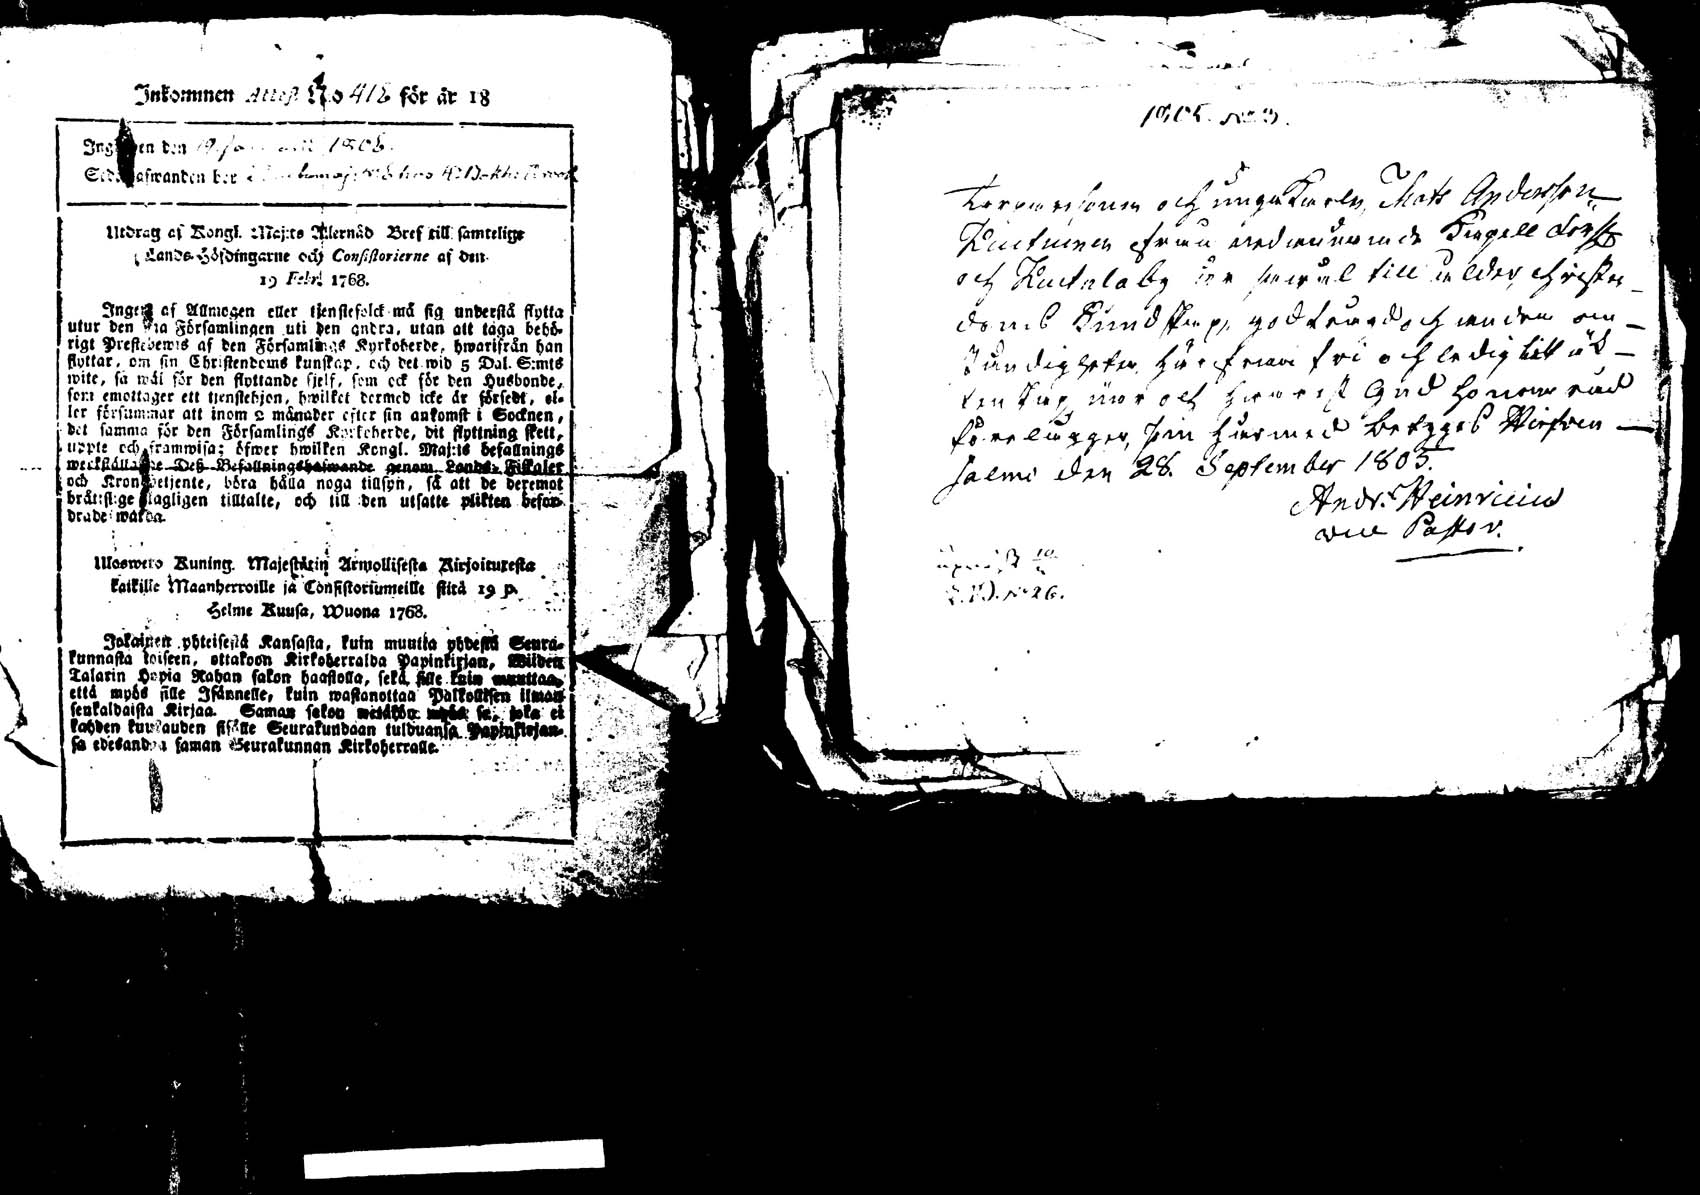 Inkommen Attest No 418 för år 18
den 1806.
Utdrag af Kongl. Maj:ts Allernåd Bref till samtelige
Lands-Höfdingarne och Consistorierne af den
19 Febr. 1768.
Ingen af Allmogen eller tjenstefolck må sig understå flytta
utur den ena Församlingen uti den andra, utan att taga behö-
rigt Prestebewis af den Församlings Kyrkoherde, hwarifrån han
flyttar, om sin Christendoms kunskap, och det wid 5 Dal. S:mts
wite, så wäl för den flyttande sjelf, som ock för den Husbonde,
som emottager ett tjenstehjon, hwilket dermed icke är försedt, el-
ler försummar att inom 2 månader efter sin ankomst i Socknen,
det samma för den Församlings Kyrkoherde, dit flyttning skett,
uppte och framwisa; öfwer hwilken Kongl. Maj:ts befallnings
werkställande Deß Befallningshafwande genom Lands-Fiskaler
och Kronobetjente, böra hålla noga tillsyn, så att de deremot
brätslige lagligen tilltalte, och till den utsatte plikten befor-
drade warda.
Uloswero Kuning. Majestätin Armollisesta Kirjoituxesta
kaikille Maanherroille ja Consistoriumeille siitä 19 p.
Helme Kuusa, Wuona 1768.
Jokainen yhteisestä Kansasta, kuin muutta yhdestä Seura-
kunnasta toiseen, ottakoon Kirkoherralda Papinkirjan, Wiiden
Talarin Hopia Rahan sakon haastolla, sekä sille kuin muuttaa,
että myös sille Isännelle, kuin wastanottaa Palkollisen ilman
senkaldaista Kirjaa. Saman sakon wetäkön myös se, joka ei
kahden kuukauden sisälle Seurakundaan tulduansa Papinkirjan-
sa edesandaa saman Seurakunnan Kirkoherralle.
1805. No 3.
och unga Karln, Mats Andersson
från Capell
och by till ålder, christen-
doms Kundskap, god frägd och andra om-
ständigheter, härifrån fri och ledig till äk-
tenskap när och hwarest Gud honom råd
förelägger, som härmed betygas
salmi den 28. September 1805.
Andr. Heinricius
vice Pastor.
No 26.